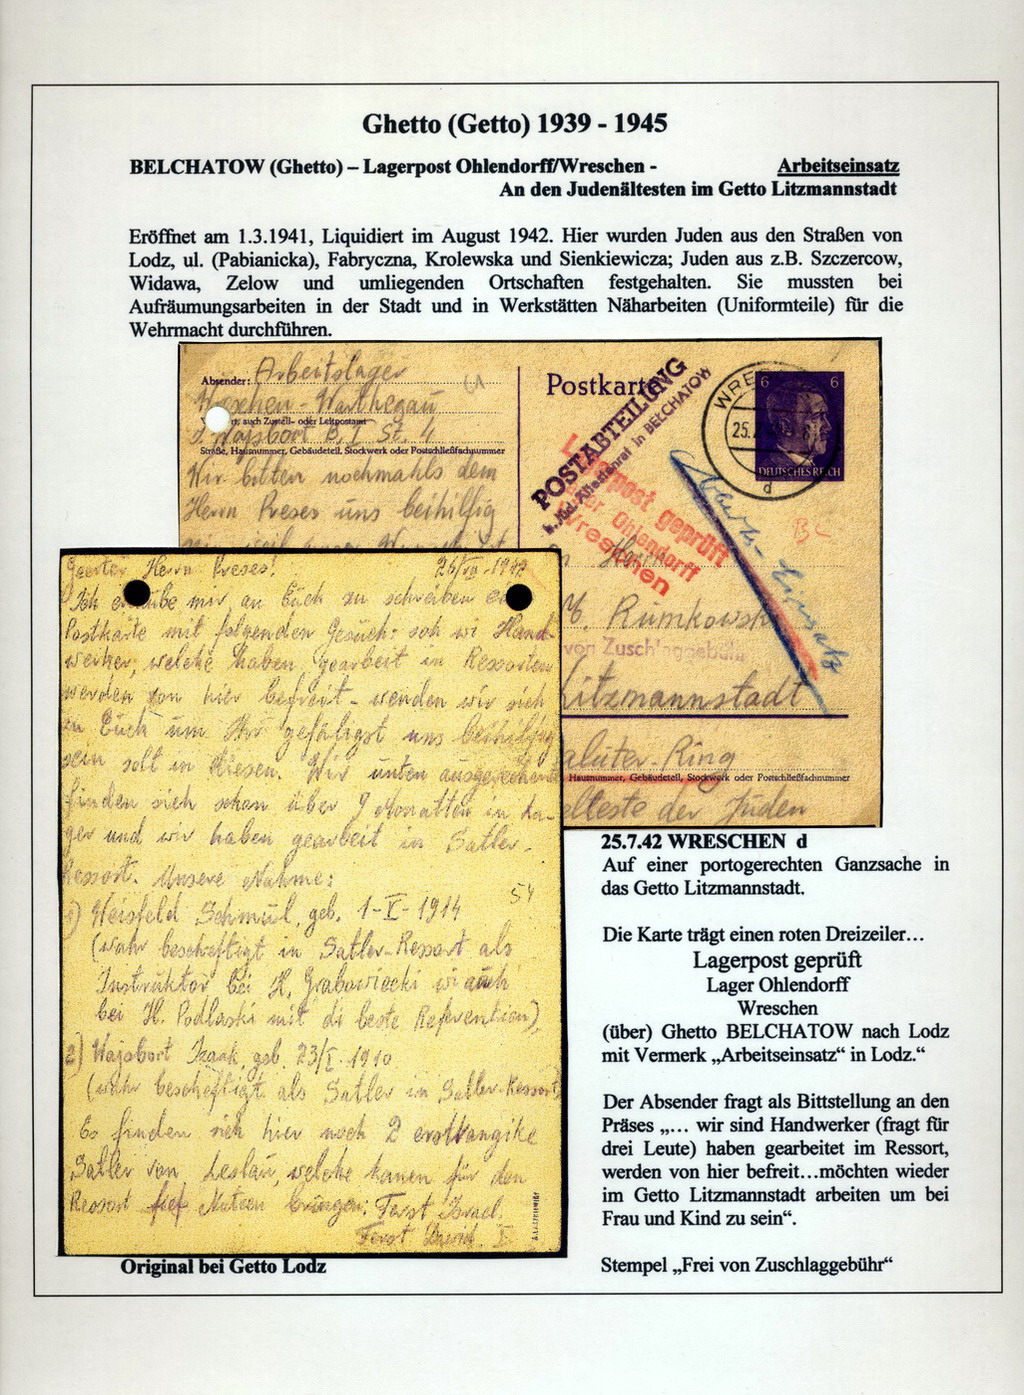 Ghetto (Getto) 1939 - 1945
BELCHATOW (Ghetto) – Lagerpost Ohlendorff/Wreschen - Arbeitseinsatz
An den Judenältesten im Getto Litzmannstadt
Eröffnet am 1.3.1941, Liquidiert im August 1942. Hier wurden Juden aus den Straßen von
Lodz, ul. (Pabianicka), Fabryczna, Krolewska und Sienkiewicza; Juden aus z.B. Szczercow,
Widawa, Zelow und umliegenden Ortschaften festgehalten. Sie mussten bei
Aufräumungsarbeiten in der Stadt und in Werkstätten Näharbeiten (Uniformteile) für die
Wehrmacht durchführen.
Absender: Arbeitslager
Wreschen - Warthegau
auch Zustell- oder Leitpostamt
J. Wajsbort B. I St. 4
Straße, Hausnummer, Gebäudeteil, Stockwerk oder Postschließfachnummer
Wir bitten nochmahls dem
Herrn Preses uns beihilfig
Postkarte
POSTABTEILUNG
b. Jüd. Ältestenrat in BELCHATOW
Lagerpost geprüft
Lager Ohlendorff
Wreschen
WRE
25.
d
6 6
DEUTSCHES REICH
Arbeits-Einsatz
BC
Herrn
M. Rumkowski
von Zuschlaggebühr
Litzmannstadt
aluter-Ring
Hausnummer, Gebäudeteil, Stockwerk oder Postschließfachnummer
elteste der Juden
Geerter Herrn Preses! 26/VII-1942
Ich erlaube mir an Euch zu schreiben
Postkarte mit folgenden Gesuch: soh wi Hand-
werker, welche haben gearbeit in Ressorten
werden von hier befreit - wenden wir sich
zu Euch um Ihr gefäligst uns beihilfig
sein solt in diesen. Wir unten
finden sich schon über 9 Monatten in La-
ger und wir haben gearbeit in Satler-
Ressort. Unsere Nahme:
54
1) Weisfeld Schmul, geb. 1-V-1914
(wahr bescheftigt in Satler-Ressort als
Instruktor bei H. Grabowiecki wi auch
bei H. Podlaski mit di beste Refevention),
2) Wajsbort Izaak, geb. 23/I-1910
(wahr bescheftigt als Satler in Satler-Ressort)
Es finden sich hier noch 2 erstrangike
Satler von Leslau, welche kenen für den
Ressort fiel Nutzen brüngen: Ferst Israel.
Ferst Dawid.
25.7.42 WRESCHEN d
Auf einer portogerechten Ganzsache in
das Getto Litzmannstadt.
Die Karte trägt einen roten Dreizeiler…
Lagerpost geprüft
Lager Ohlendorff
Wreschen
(über) Ghetto BELCHATOW nach Lodz
mit Vermerk „Arbeitseinsatz“ in Lodz.“
Der Absender fragt als Bittstellung an den
Präses „… wir sind Handwerker (fragt für
drei Leute) haben gearbeitet im Ressort,
werden von hier befreit…möchten wieder
im Getto Litzmannstadt arbeiten um bei
Frau und Kind zu sein“.
Stempel „Frei von Zuschlaggebühr“
Original bei Getto Lodz